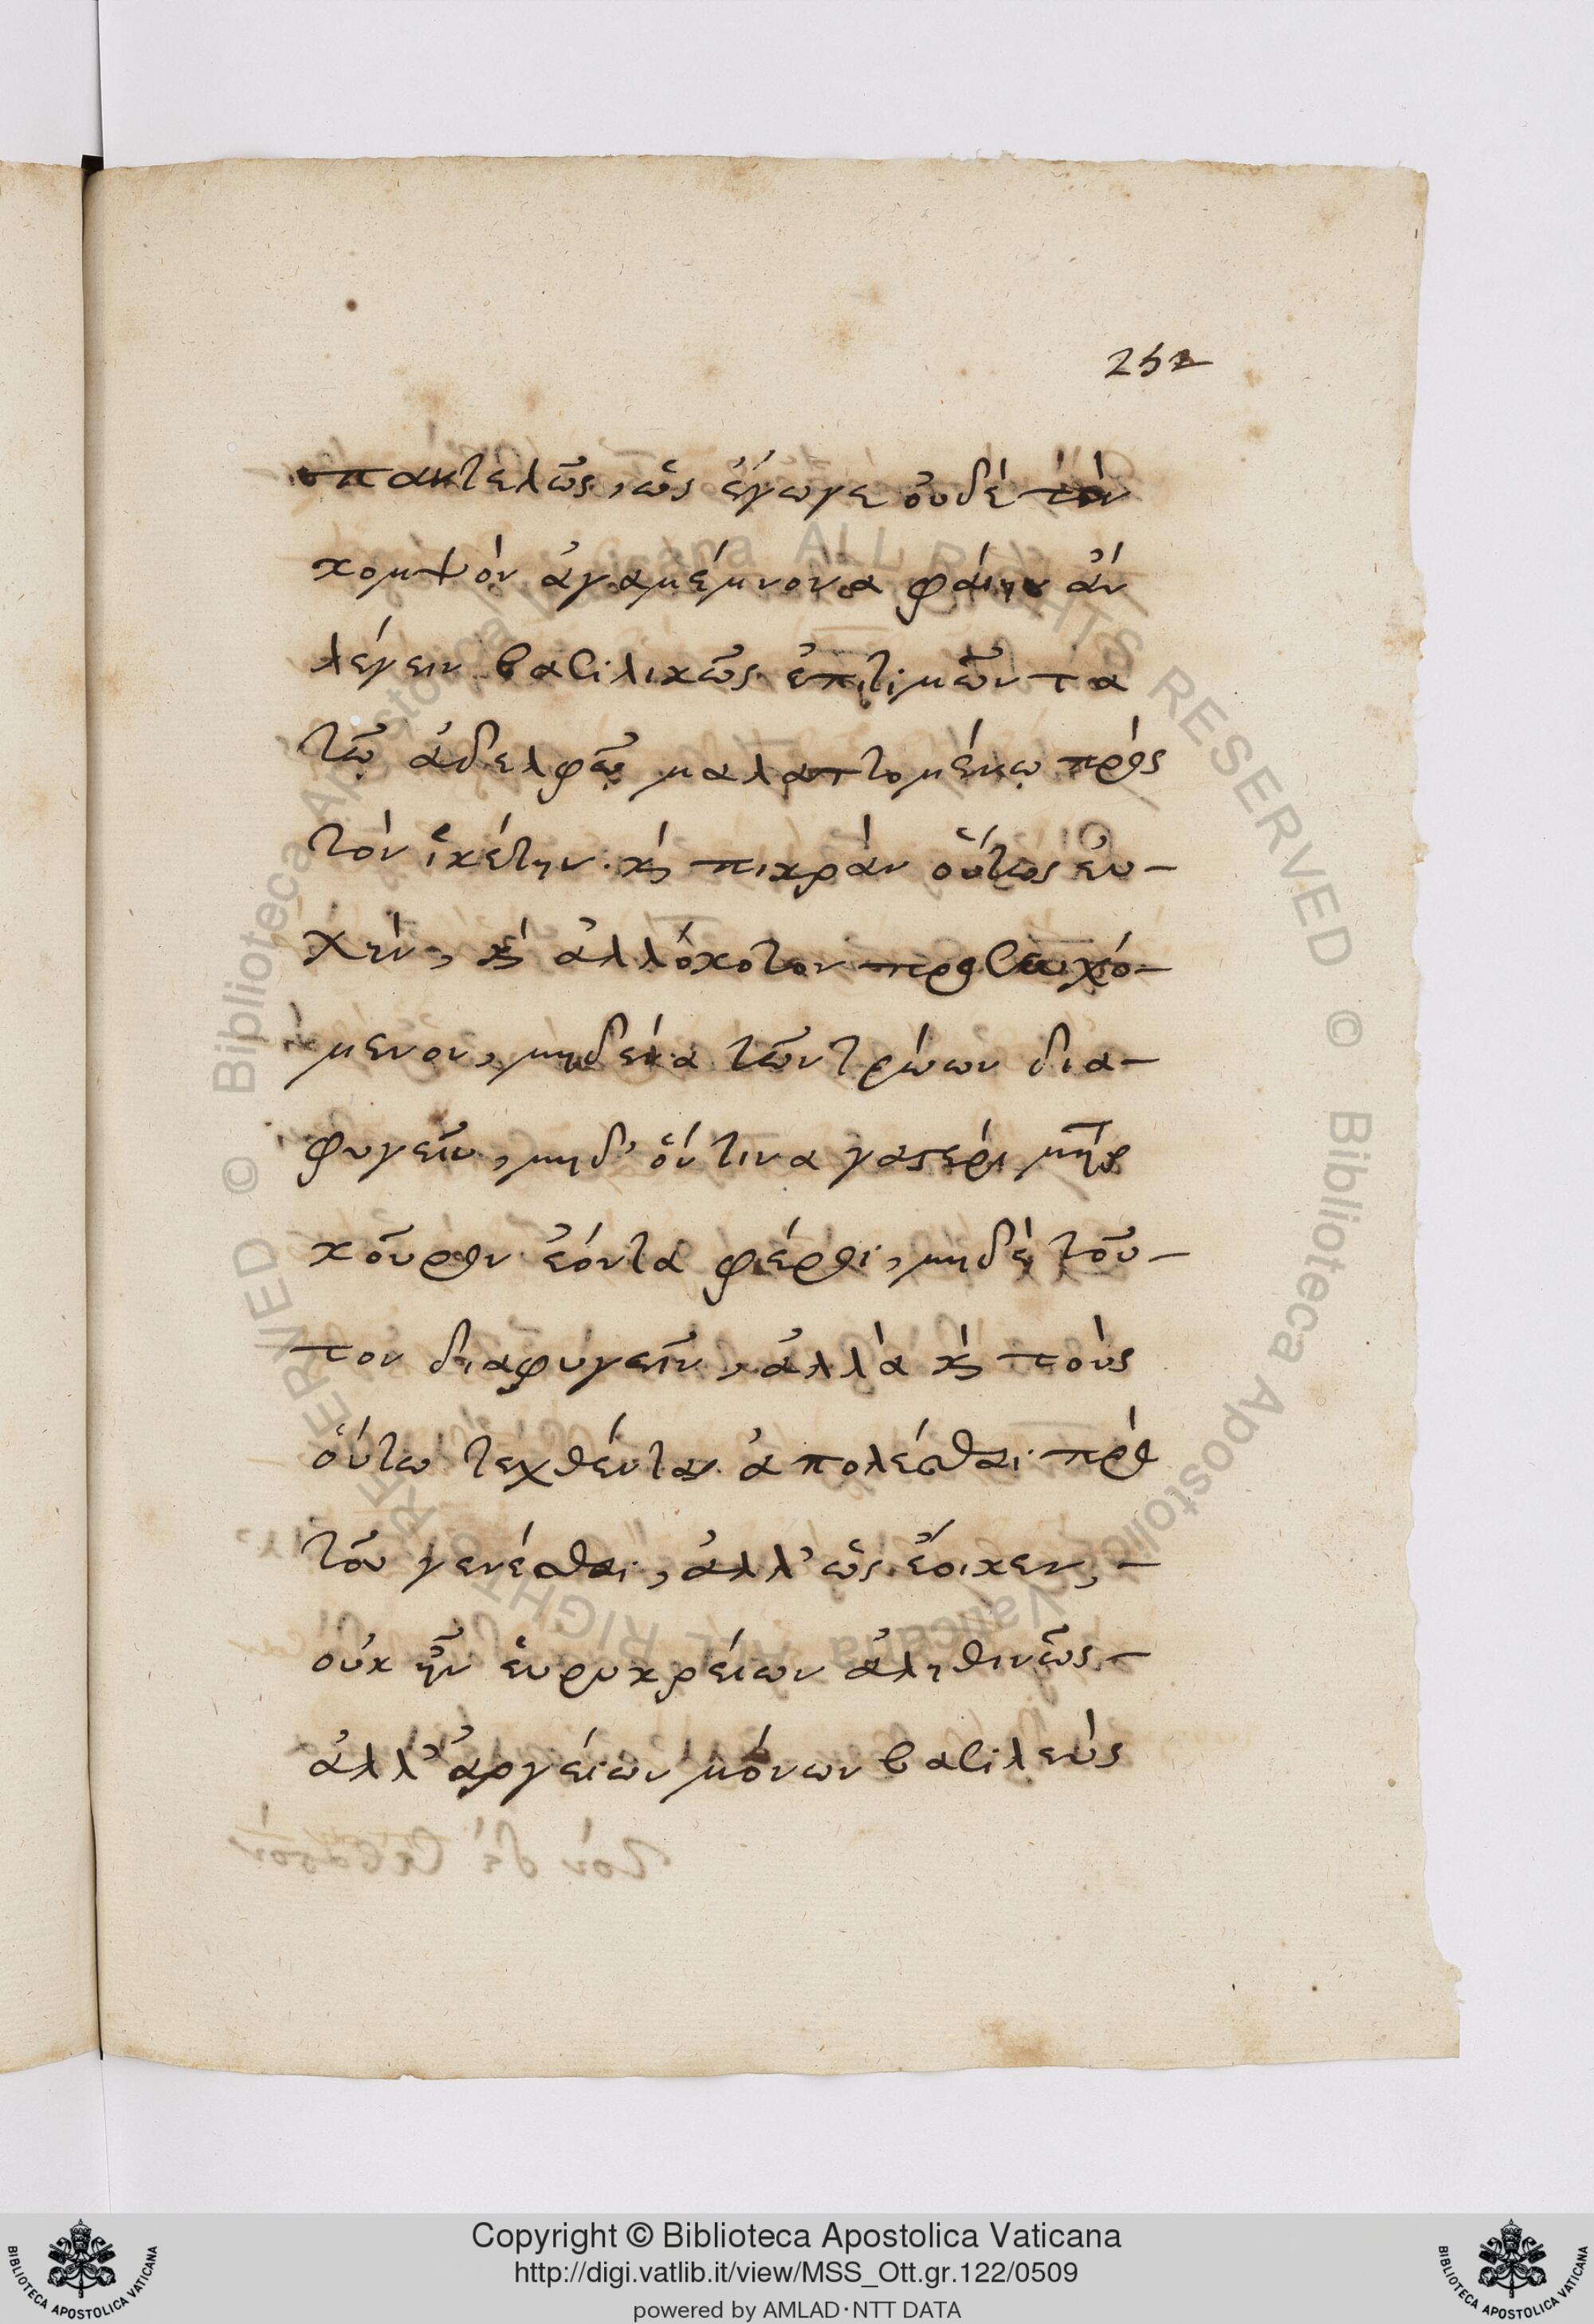 252
παντελῶς, ὡς ἔγωγε οὐδὲ τὸν
κομψὸν ἀγαμέμνονα φαίην ἂν
λέγειν βασιλικῶς ἐπιτιμῶντα
τῷ ἀδελφῷ μαλαττομένῳ πρὸς
τὸν ἱκέτην. καὶ πικρὰν οὕτως εὐ-
χὴν, καὶ ἀλλόκοτον προσευχό-
μενον, μηδένα τῶν τρώων δια-
φυγεῖν, μηδ' ὅντινα γαστέρι μήτηρ
κοῦρον ἐόντα φέροι, μηδὲ τοῦ-
τον διαφυγεῖν, ἀλλὰ καὶ τοὺς
οὕτω τεχθέντας ἀπολέσθαι πρὸ
τοῦ γενέσθαι, ἀλλ' ὡς ἔοικεν, -
οὐκ ἦν εὐρυκρείων ἀληθινῶς -
ἀλλ' ἀργείων μόνων βασιλεὺς
Copyright © Biblioteca Apostolica Vaticana
http://digi.vatlib.it/view/MSS_Ott.gr.122/0509
powered by AMLAD·NTT DATA
BIBLIOTECA APOSTOLICA VATICANA
BIBLIOTECA APOSTOLICA VATICANA